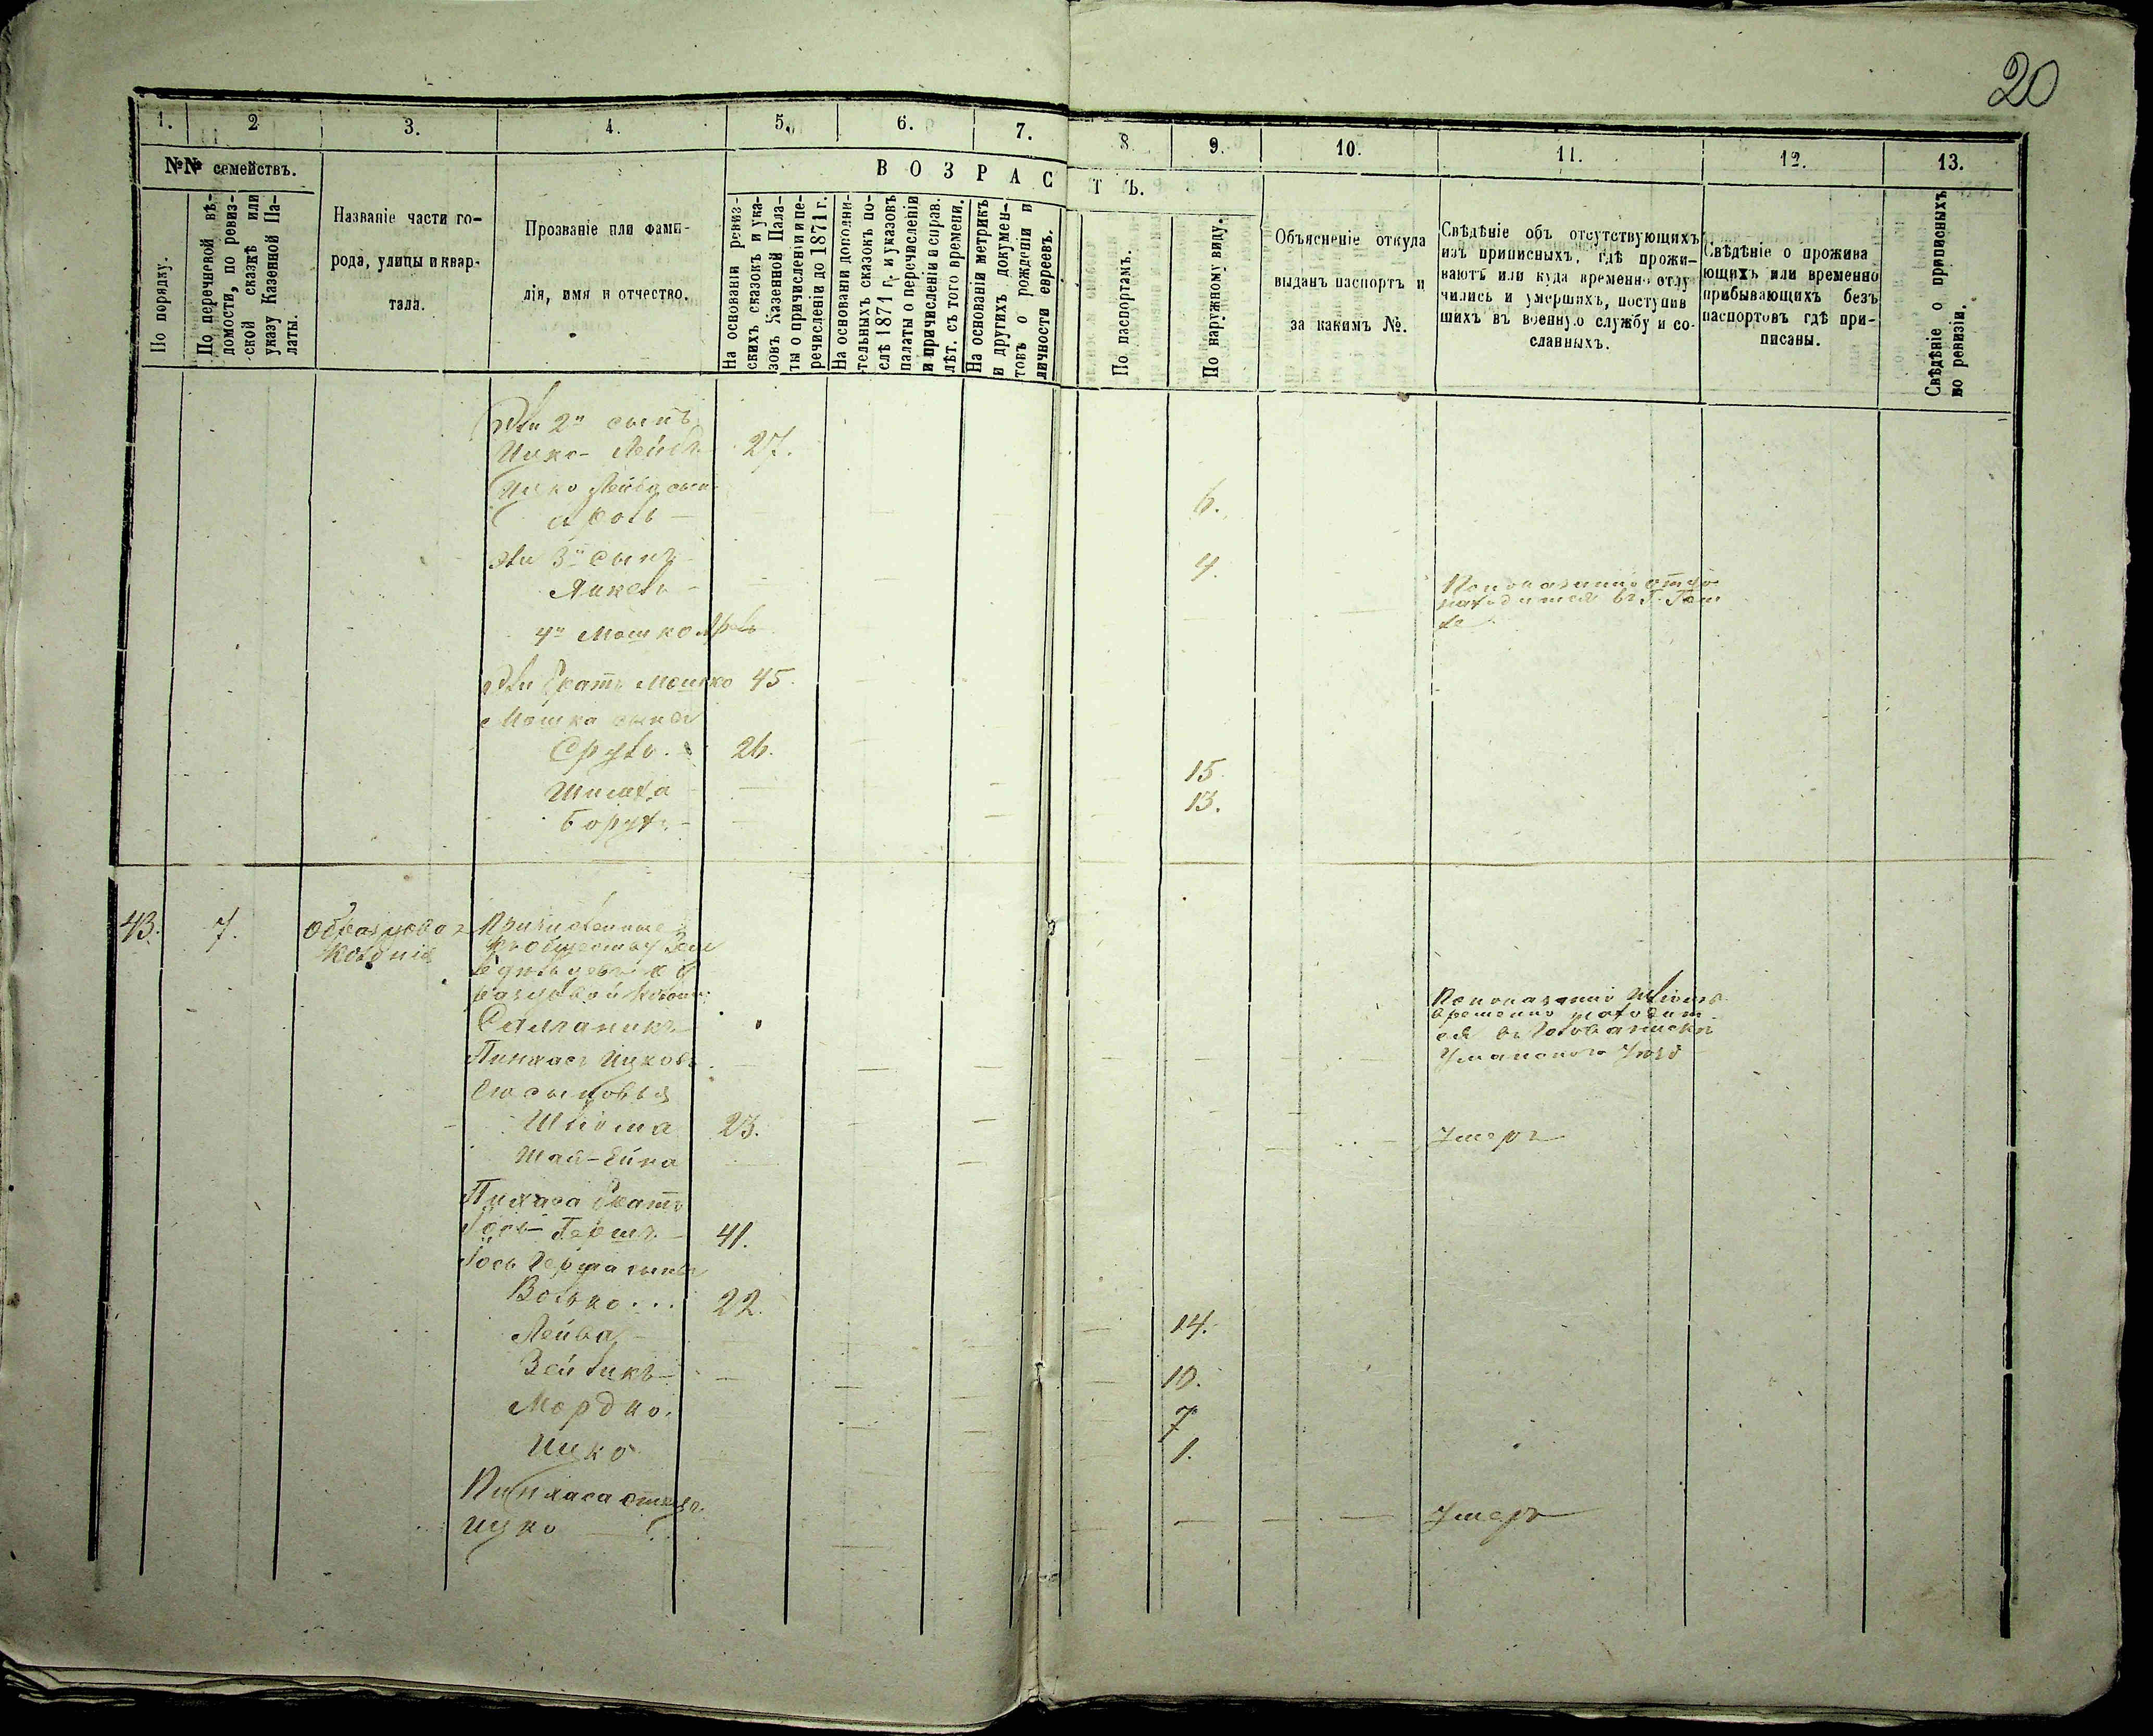 20
1. 2 3. 4. 5. 6. 7. 8 9. 10. 11. 12. 13.
№№ семействъ.
ВОЗРАСТЪ.
По порядку.
По перечневой вѣ-
домости, по ревиз-
ской сказкѣ или
указу Казенной Па-
латы.
Названіе части го-
рода, улицы и квар-
тала.
Прозваніе или фами-
лія, имя и отчество.
На основаніи ревиз-
скихъ сказокъ и ука-
зовъ Казенной Пала-
ты о причисленіи и пе-
речисленіи до 1871 г.
На основаніи дополни-
тельныхъ сказокъ по-
слѣ 1871 г. и указовъ
палаты о перечисленіи
и причисленіи и справ.
лѣт. съ того времени.
На основаніи метрикъ
и другихъ докумен-
товъ о рожденіи и
личности евреевъ.
По паспортамъ.
По наружному виду.
Объясненіе откуда
выданъ паспортъ и
за какимъ №.
Свѣдѣніе объ отсутствующихъ
изъ приписныхъ, гдѣ прожи-
ваютъ или куда временно отлу
чились и умершихъ, поступив
шихъ въ военную службу и со-
сланныхъ.
Свѣдѣніе о прожива
ющихъ или временно
прибывающихъ безъ
паспортовъ гдѣ при-
писаны.
Свѣдѣніе о приписныхъ
по ревизіи.
2й сынъ
Ицко-Лейба 27.
Ицко Лейба сын
6.
3й сынъ
Янкель 4.
находится въ Г.
4й Мошко
братъ Мошко 45.
Мошка сынъ
Сруль 26.
15.
Борухъ 13.
43. 7. Образцова Причисленные
Колонія къ обществу Зем
ледѣльцевъ
колоніи
временно находит
ся въ Голованискѣ
Уманскаго уѣзд
Пинхасъ Ицковъ
Его сыновья
Шлёма 23.
Шая- Умеръ
Пинхаса братъ
Іось-Гершъ 41.
Іось Герша сынъ
Волько... 22.
Лейба 14.
Зейликъ 10.
Мордко. 7
Ицко 1.
Пинхаса отецъ
Ицко Умеръ